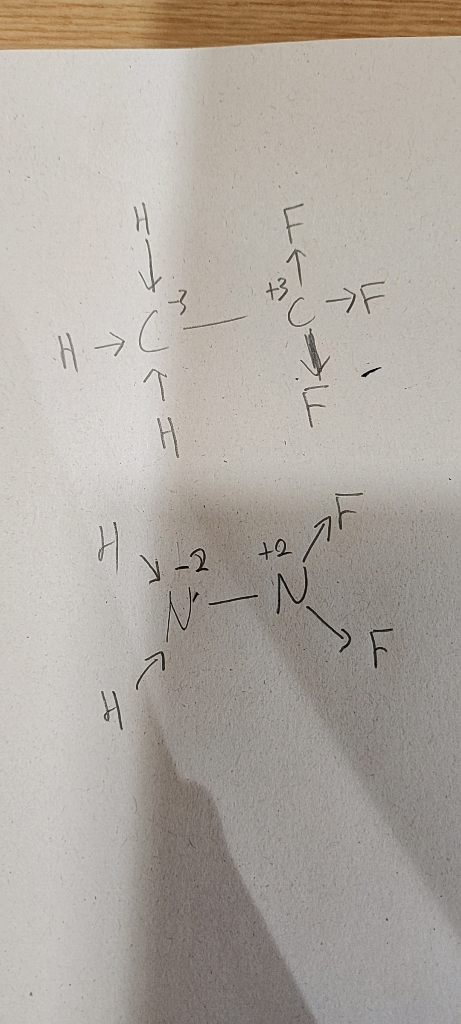 H F
H → C -3 — +3 C → F
H F
H -2 +2 F
N — N
H F